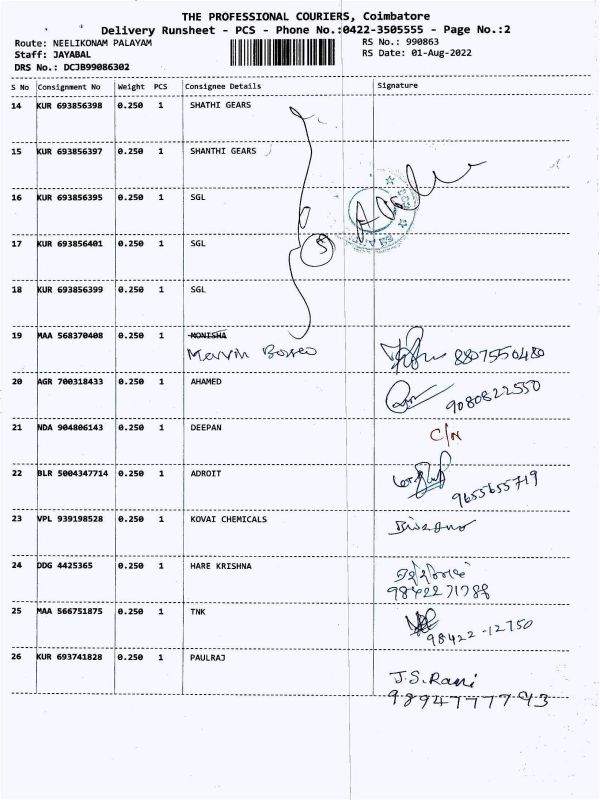 THE PROFESSIONAL COURIERS, Coimbatore
Delivery Runsheet - PCS - Phone No.:0422-3505555 - Page No.:2
Route: NEELIKONAM PALAYAM RS No.: 990863
Staff: JAYABAL RS Date: 01-Aug-2022
DRS No.: DCJB99086302
S No Consignment No Weight PCS Consignee Details Signature
14 KUR 693856398 0.250 1 SHATHI GEARS
15 KUR 693856397 0.250 1 SHANTHI GEARS
16 KUR 693856395 0.250 1 SGL
17 KUR 693856401 0.250 1 SGL
5
18 KUR 693856399 0.250 1 SGL
19 MAA 568370408 0.250 1 MONISHA
8807550480
20 AGR 700318433 0.250 1 AHAMED
9080822550
21 NDA 904806143 0.250 1 DEEPAN C/N
22 BLR 5004347714 0.250 1 ADROIT
9655655719
23 VPL 939198528 0.250 1 KOVAI CHEMICALS
24 DDG 4425365 0.250 1 HARE KRISHNA
9842271788
25 MAA 566751875 0.250 1 TNK
98422-12750
26 KUR 693741828 0.250 1 PAULRAJ
J.S.Rani
9894777793